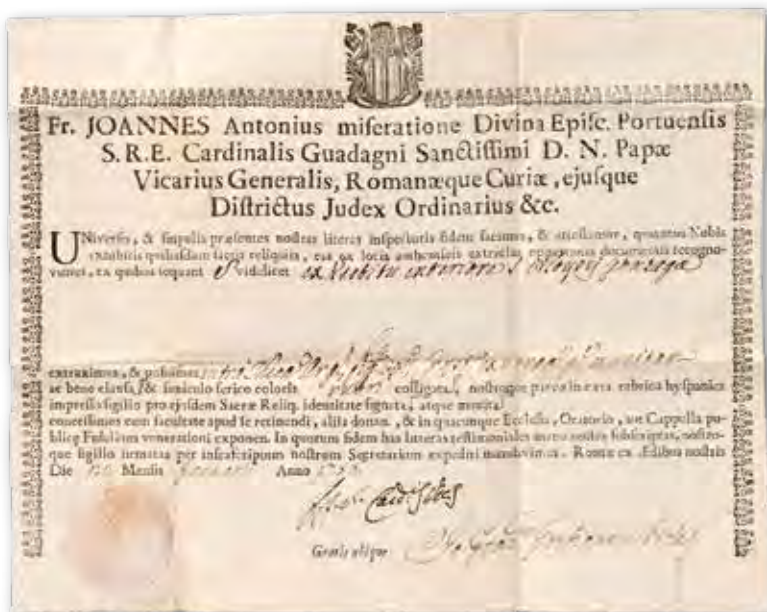 Fr. JOANNES Antonius miseratione Divina Episc. Portuensis
S. R. E. Cardinalis Guadagni Sanctissimi D. N. Papæ
Vicarius Generalis, Romanæque Curiæ, ejusque
Districtus Judex Ordinarius &c.
UNiversis, & singulis præsentes nostras literas inspecturis fidem facimus, & attestamur, quatenus Nobis
exhibitis quibusdam sacris reliquiis, eas ex locis authenticis extractas documentis recogno-
vimus, ex quibus videlicet
extraximus, & posuimus
ac bene clausa, & funiculo serico coloris colligata, nostroque parvo in cera rubrica hyspanica
impresso sigillo pro ejusdem Sacræ Reliq. identitate signata, atque munita
concessimus cum facultate apud se retinendi, aliis donan. & in quacunque Ecclesia, Oratorio, aut Cappella pu-
blicę Fidelium venerationi exponen. In quorum fidem has litteras testimoniales manu nostra subscriptas, nostro-
que sigillo firmatas per infrascriptum nostrum Secretarium expediri mandavimus. Romæ ex Ædibus nostris
Die Mensis Anno
Gratis ubique